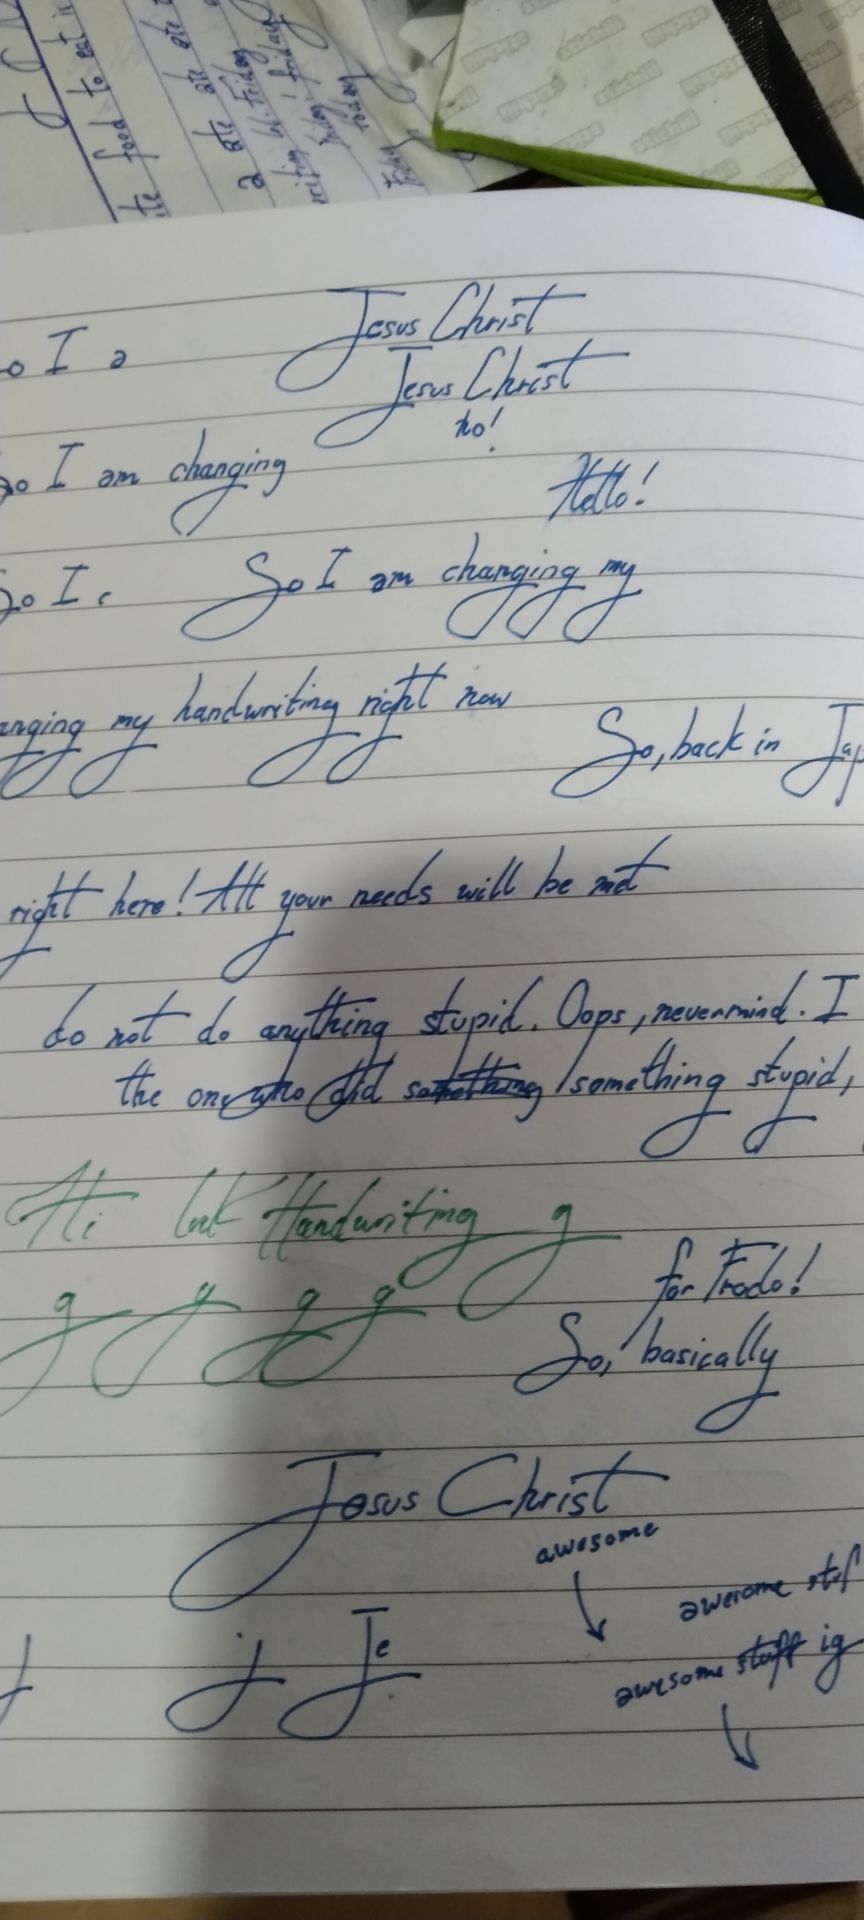 food to eat
a ate ate ate
Friday
today
stickii stickii stickii
I a
Jesus Christ
Jesus Christ
no!
So I am changing
Hello!
So I c
So I am changing my
anging my handwriting right now
So, back in Jap
right here! All your needs will be met
do not do anything stupid. Oops, nevermind. I
the one who did something something stupid,
Hi look Handwriting g
g y g g
for Frodo!
So, basically
Jesus Christ
awesome
awesome stuf
j j Je
awesome stuff ig